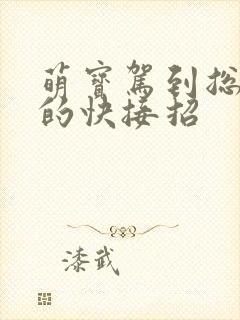 萌寶駕到总
的快接招
漆武